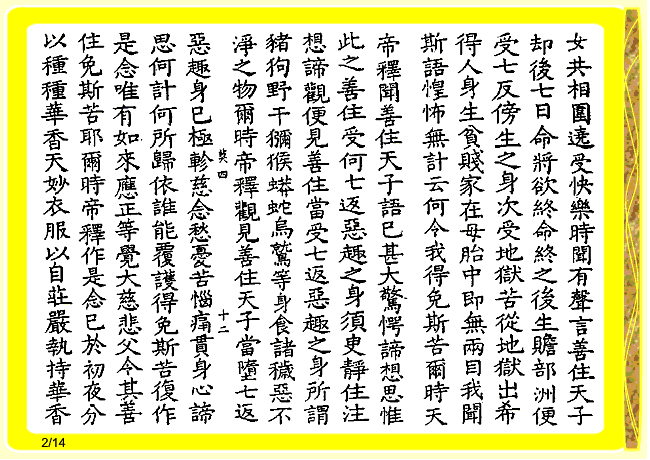 女共相圍遶受快樂時聞有聲言善住天子
却後七日命將欲終命終之後生贍部洲便
受七反傍生之身次受地獄苦從地獄出希
得人身生貧賤家在母胎中即無兩目我聞
斯語惶怖無計云何令我得免斯苦爾時天
帝釋聞善住天子語已甚大驚愕諦想思惟
此之善住受何七返惡趣之身須臾靜住注
想諦觀便見善住當受七返惡趣之身所謂
豬狗野干獼猴蟒蛇烏鷲等身食諸穢惡不
淨之物爾時帝釋觀見善住天子當墮七返
十二
惡趣身已極軫慈念愁憂苦惱痛貫身心諦
思何計何所歸依誰能覆護得免斯苦復作
是念唯有如來應正等覺大慈悲父令其善
住免斯苦耶爾時帝釋作是念已於初夜分
以種種華香天妙衣服以自莊嚴執持華香
2/14